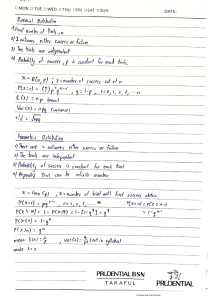 MON TUE WED THU FRI SAT SUN DATE:
Binomial Distribution
1) Fixed number of trials, n
2) 2 outcomes, either success or failure
3) The trials are independent
4) Probability of success, p is constant for each trial.
X ~ B(n, p) ; x = number of success out of n
P(X=r) = (n r) p^r q^n-r , q = 1-p , r = 0, 1, 2, ... n
E(X) = np (mean)
Var(X) = npq (variance)
s/d = √npq
Geometric Distribution
1) There are 2 outcomes, either success or failure
2) The trials are independent
3) Probability of success is constant for each trial
4) Repeated trial can be infinite number
X ~ Geo (p) , x = number of trial until first success obtain.
P(X=r) = pq^r-1 , r = 1, 2, 3, ...
mode = 1
PRUDENTIAL BSN
TAKAFUL
PRUDENTIAL